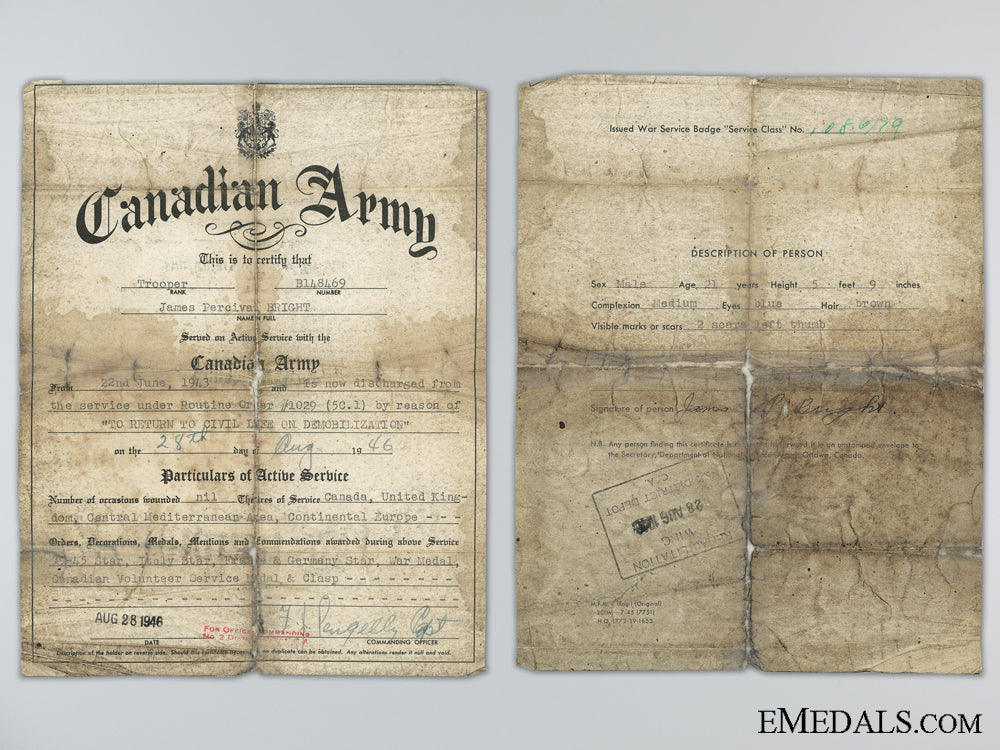 Canadian Army
This is to certify that
Trooper B148469
RANK NUMBER
James Percival BRIGHT
NAME IN FULL
Served on Active Service with the
Canadian Army
From 22nd June, 1943 and is now discharged from
the service under Routine Order 1029 (5C.1) by reason of
"TO RETURN TO CIVIL LIFE ON DEMOBILIZATION"
on the 28th day of Aug 19 46
Particulars of Active Service
Number of occasions wounded nil Theatres of Service Canada, United King-
dom, Central Mediterranean Area, Continental Europe - - -
Orders, Decorations, Medals, Mentions and Commendations awarded during above Service
39-45 Star, Italy Star, France & Germany Star, War Medal,
Canadian Volunteer Service Medal & Clasp - - - - - - - - - -
AUG 28 1946
FOR OFFICER COMMANDING
No. 2
Capt
DATE COMMANDING OFFICER
Description of the holder on reverse side. Should this certificate duplicate can be obtained. Any alterations render it null and void.
Issued War Service Badge "Service Class" No. 108679
DESCRIPTION OF PERSON
Sex Male Age 21 years Height 5 feet 9 inches
Complexion Medium Eyes blue Hair brown
Visible marks or scars 2 scars left thumb
Signature of person James P. Bright.
N.B. Any person finding this certificate is to forward it in an unstamped envelope to
the Secretary, Department of National Defence Army, Ottawa, Canada.
REHABILITATION
WING
28 AUG 1946
DISTRICT DEPOT
C.A.
(Original)
7-45 (7751)
H.Q. 1772-39-1653
EMEDALS.COM